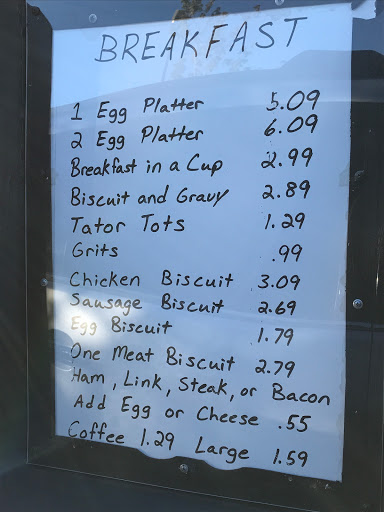 BREAKFAST
1 Egg Platter 5.09
2 Egg Platter 6.09
Breakfast in a Cup 2.99
Biscuit and Gravy 2.89
Tator Tots 1.29
Grits .99
Chicken Biscuit 3.09
Sausage Biscuit 2.69
Egg Biscuit 1.79
One Meat Biscuit 2.79
Ham, Link, Steak, or Bacon
Add Egg or Cheese .55
Coffee 1.29 Large 1.59